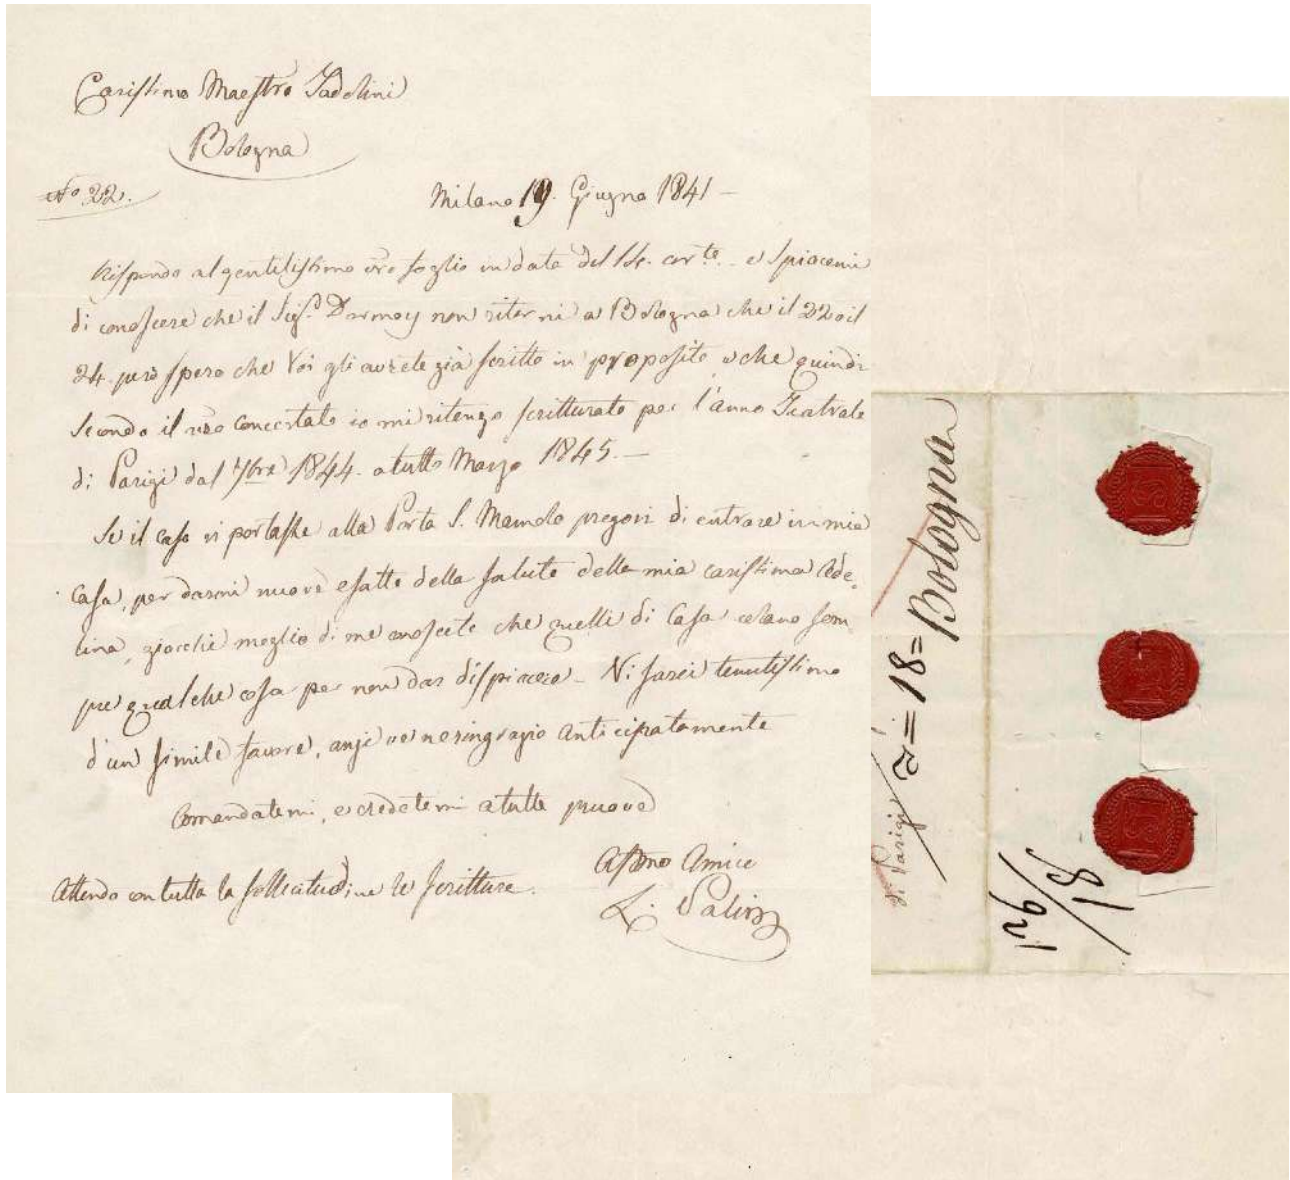 Carissimo Maestro Tadolini
Bologna
No 22.
Milano 19. Giugno 1841 –
Rispondo al gentilissimo vro foglio in data del 14. corte. e spiacemi
di conoscere che il Sigr. Dormoy non ritorni a Bologna che il 22 o il
24. però spero che Voi gli avrete già scritto in proposito e che quindi
secondo il vro concertato io mi ritengo scritturato per l'anno Teatrale
di Parigi dal 7bre 1844. a tutto Marzo 1845. –
Se il caso vi portasse alla Porta S. Mamolo pregovi di entrare in mia
casa, per darmi nuove esatte della salute della mia carissima Ade-
lina, giacchè meglio di me conoscete che quelli di Casa celano sem
pre qualche cosa per non dar dispiacere – Vi sarei tenutissimo
d'un simile favore, anzi ve ne ringrazio anticipatamente
Comandatemi, e credetemi a tutte pruove
Affmo Amico
Attendo con tutta la sollecitudine le scritture.
L.
di Parigi
= 18 = Bologna